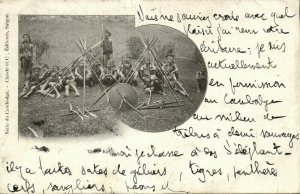 Claude et Cie, Editeurs, Saigon.
Série du Cambodge.
Vous ne sauriez croire avec quel
plaisir j'ai reçu votre
dernière ; je suis
actuellement
en permission
au Cambodge
au milieu de
tribus à demi sauvages
où je chasse à dos d'éléphant
il y a toutes sortes de gibiers, tigres, panthères
cerfs, sangliers, paons et